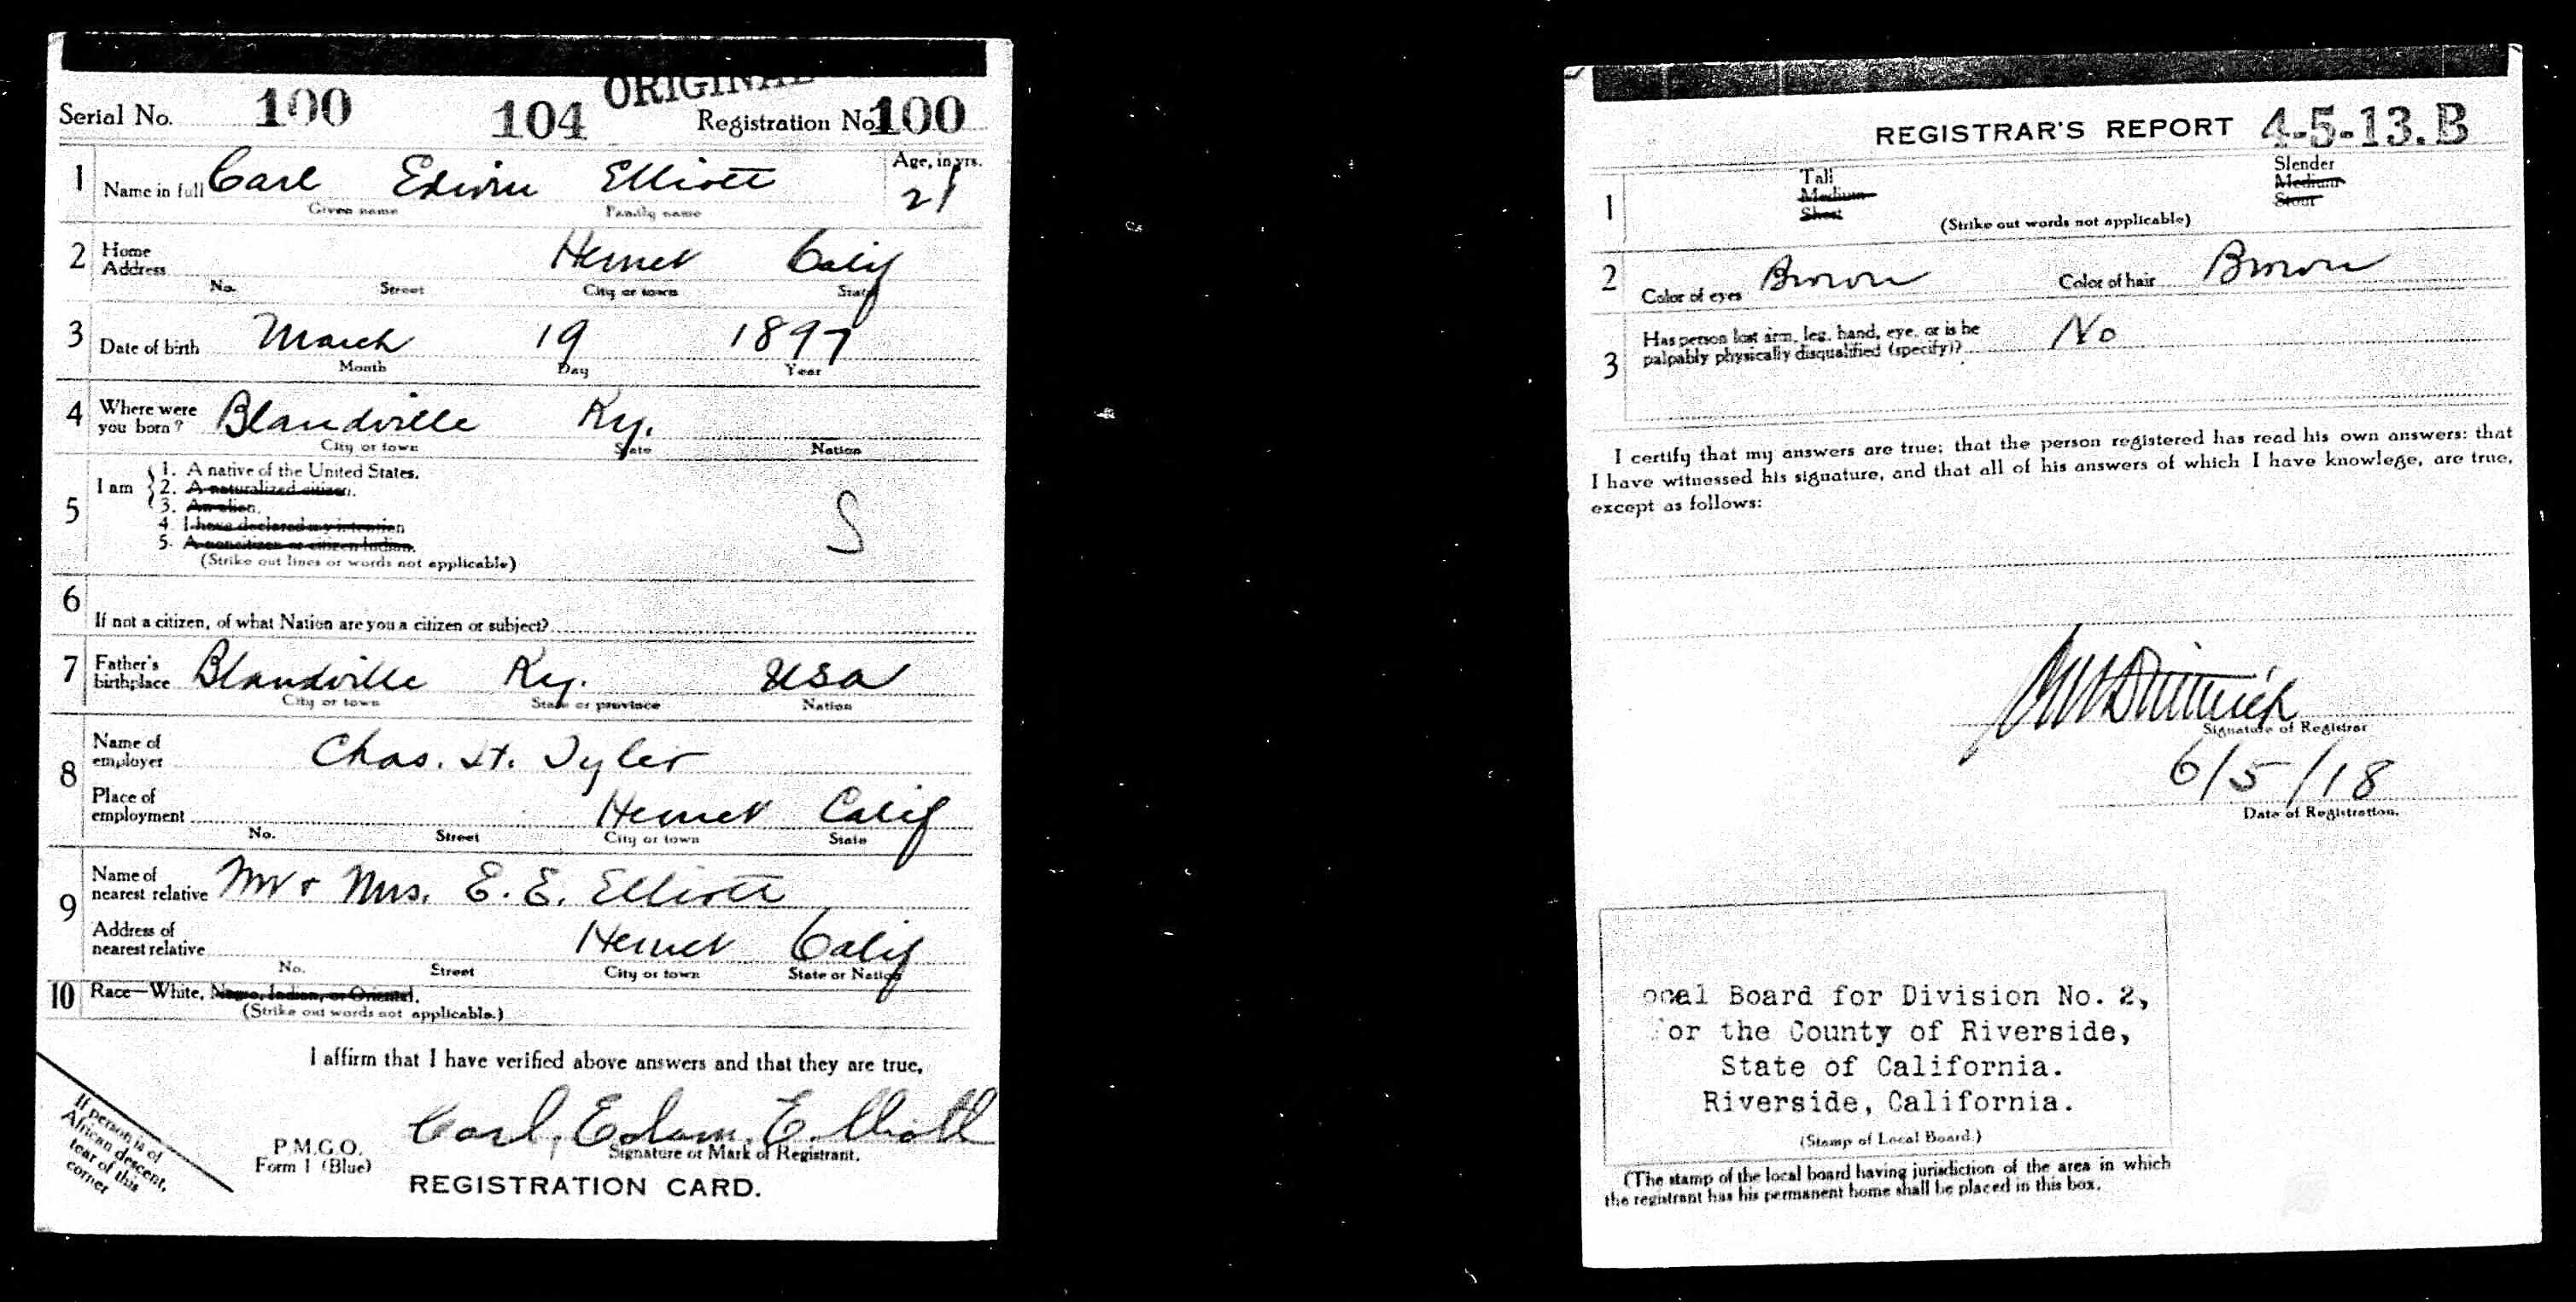 ORIGINAL
Serial No. 100 104 Registration No. 100
1 Name in full Carl Edwin Elliott Age, in yrs. 21
Given name Family name
2 Home Address Hemet Calif
No. Street City or town State
3 Date of birth March 19 1897
Month Day Year
4 Where were you born? Blandville Ky.
City or town State Nation
1. A native of the United States.
5 I am 2. A naturalized citizen.
3. An alien.
4. I have declared my intention
5. A noncitizen or citizen Indian.
S
(Strike out lines or words not applicable)
6 If not a citizen, of what Nation are you a citizen or subject?
7 Father's birthplace Blandville Ky. USA
City or town State or province Nation
8 Name of employer Chas. H. Tyler
Place of employment Hemet Calif
No. Street City or town State
9 Name of nearest relative Mr & Mrs. E. E. Elliott
Address of nearest relative Hemet Calif
No. Street City or town State or Nation
10 Race—White, Negro, Indian, or Oriental.
(Strike out words not applicable.)
I affirm that I have verified above answers and that they are true.
Carl, Edwin, Elliott
Signature or Mark of Registrant.
P.M.G.O.
Form 1 (Blue)
REGISTRATION CARD.
If person is of
African descent,
tear of this
corner
REGISTRAR'S REPORT 4-5-13.B
1 Tall Slender
Medium Medium
Short Stout
(Strike out words not applicable)
2 Color of eyes Brown Color of hair Brown
3 Has person lost arm, leg, hand, eye, or is he
palpably physically disqualified (specify)? No
I certify that my answers are true; that the person registered has read his own answers: that
I have witnessed his signature, and that all of his answers of which I have knowlege, are true,
except as follows:
Signature of Registrar
6/5/18
Date of Registration.
ocal Board for Division No. 2,
or the County of Riverside,
State of California.
Riverside, California.
(Stamp of Local Board.)
(The stamp of the local board having jurisdiction of the area in which
the registrant has his permanent home shall be placed in this box.